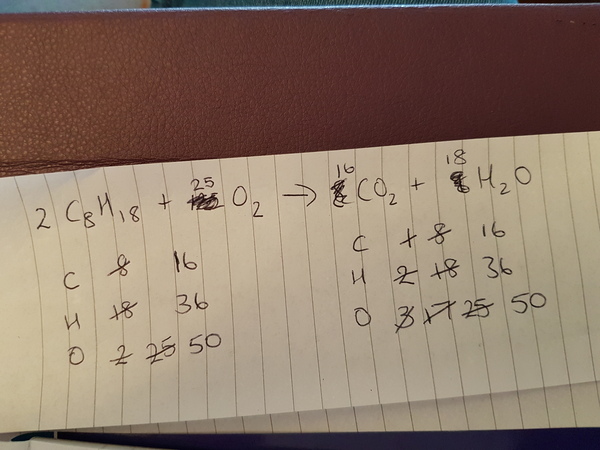 2 C₈H₁₈ + 25 O₂ → 16 CO₂ + 18 H₂O
C 8 16
H 18 36
O 2 25 50
C 1 8 16
H 2 18 36
O 3 17 25 50